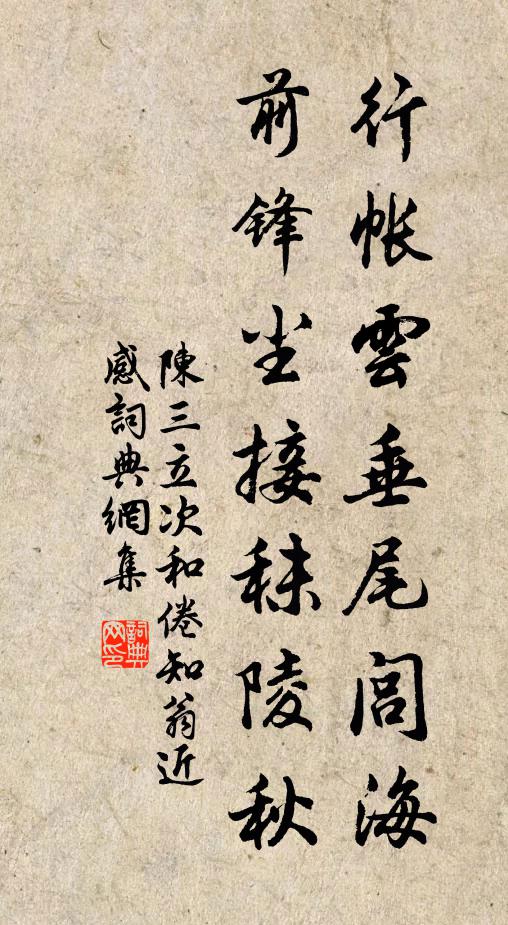 行帳雲垂尾閭海
前鋒尘接秣陵秋
陳三立次和倦知翁近
感詞典網集
詞典
网印